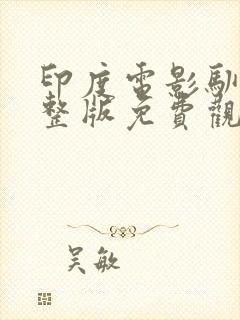 印度電影馴
整版免費觀
吳敏